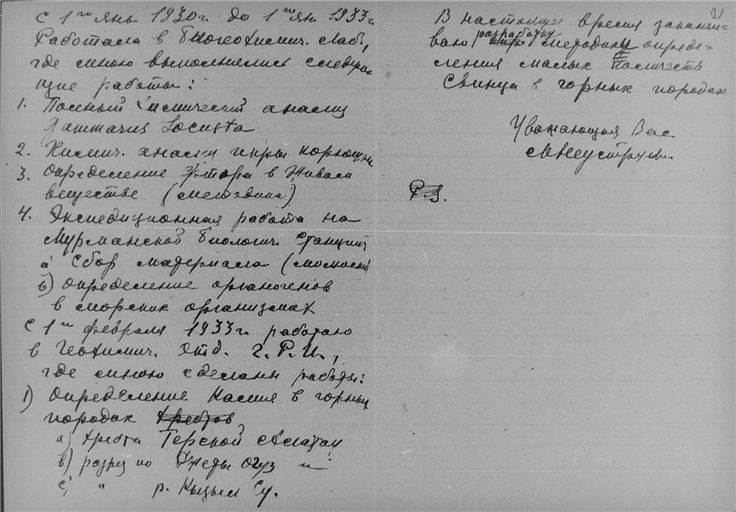 С 1го янв. 1930г. до 1го ян. 1933г.
Работала в Биогеохимич. Лаб.,
где мною выполнялись следую-
щие работы:
1. Полный химический анализ
Gammarus Locusta
2. Химич. анализ икры корюшки
3. Определение фтора в живом
веществе (методика)
4. Экспедиционная работа на
Мурманской биологич. станции
а) Сбор материала
б) определение органогенов
в морских организмах
С 1го февраля 1933г. работаю
в Геохимич. Отд. Г.Р.И.,
где мною сделаны работы:
1) Определение калия в горных
породах хребтов
а) хребта Терской Алатау
в) разрез по Джеты Огуз
с) " р. Кызыл Су.
В настоящее время заканчи-
ваю разработку методики опреде-
ления малых количеств
Свинца в горных породах
Уважающая Вас